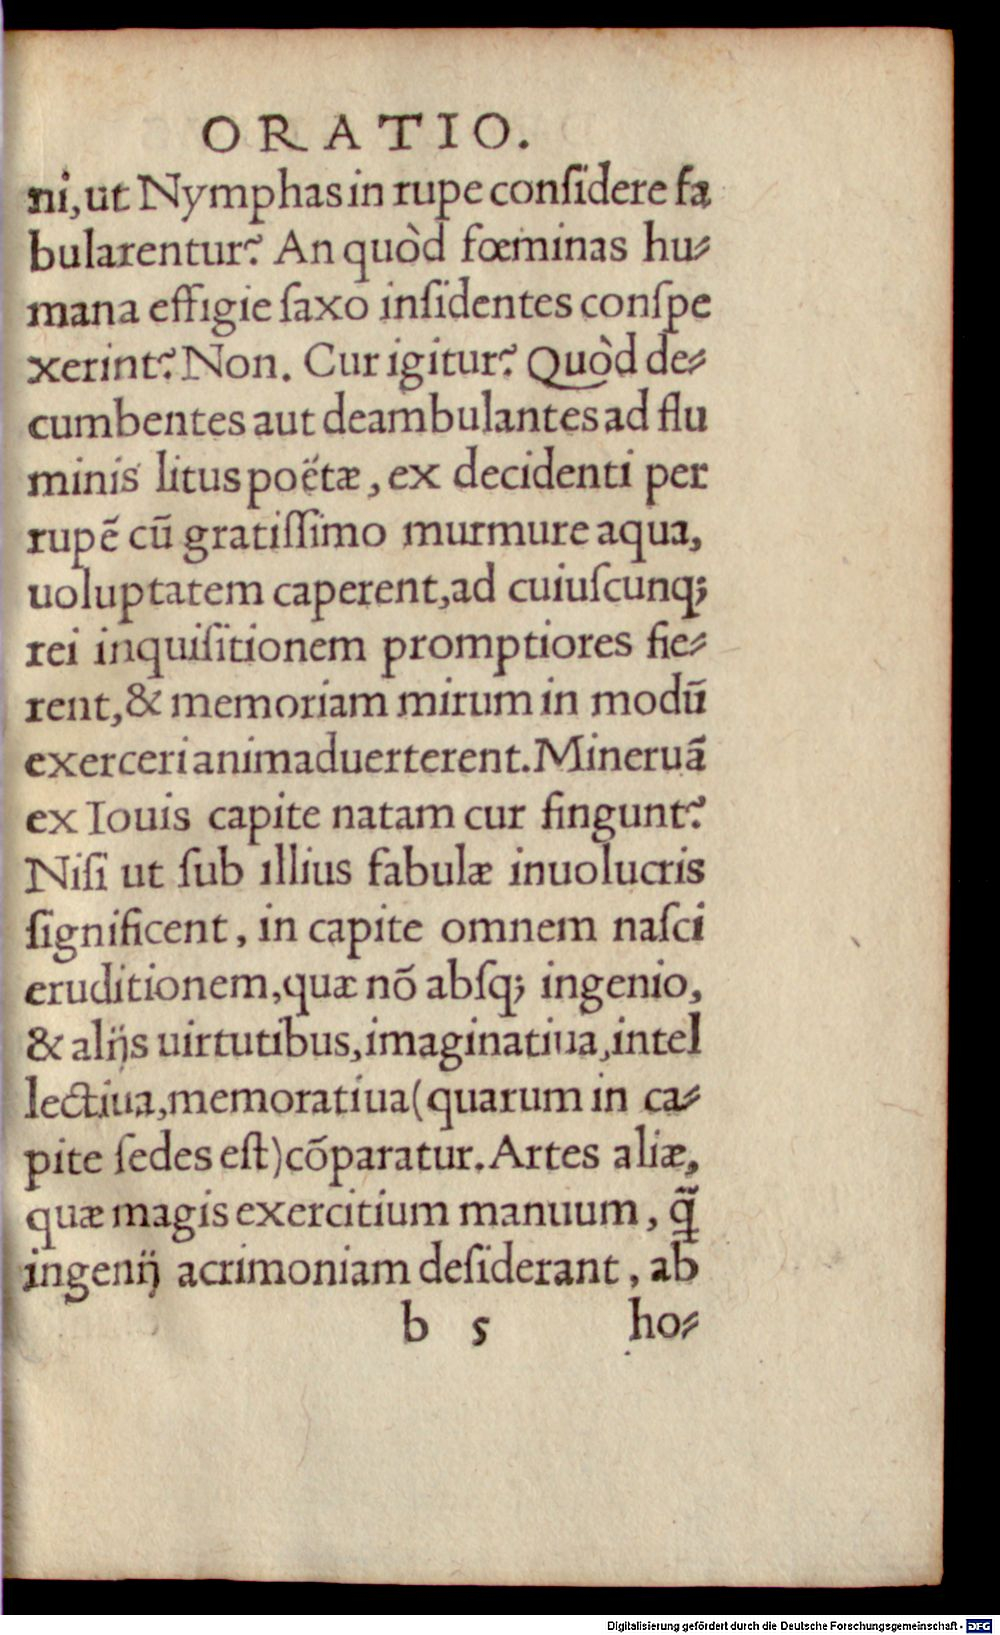 ORATIO.
ni, ut Nymphas in rupe conſidere fa
bularentur? An quòd fœminas hu-
mana effigie ſaxo inſidentes conſpe
xerint? Non. Cur igitur? Quòd de-
cumbentes aut deambulantes ad flu
minis litus poëtæ, ex decidenti per
rupẽ cũ gratiſſimo murmure aqua,
uoluptatem caperent, ad cuiuſcunq;
rei inquiſitionem promptiores fie-
rent, & memoriam mirum in modũ
exerceri animaduerterent. Mineruã
ex Iouis capite natam cur fingunt?
Niſi ut ſub illius fabulæ inuolucris
ſignificent, in capite omnem naſci
eruditionem, quæ nõ abſq; ingenio,
& alijs uirtutibus, imaginatiua, intel
lectiua, memoratiua (quarum in ca-
pite ſedes eſt) cõparatur. Artes aliæ,
quæ magis exercitium manuum, q̃
ingenij acrimoniam deſiderant, ab
b 5 ho-
Digitalisierung gefördert durch die Deutsche Forschungsgemeinschaft - DFG